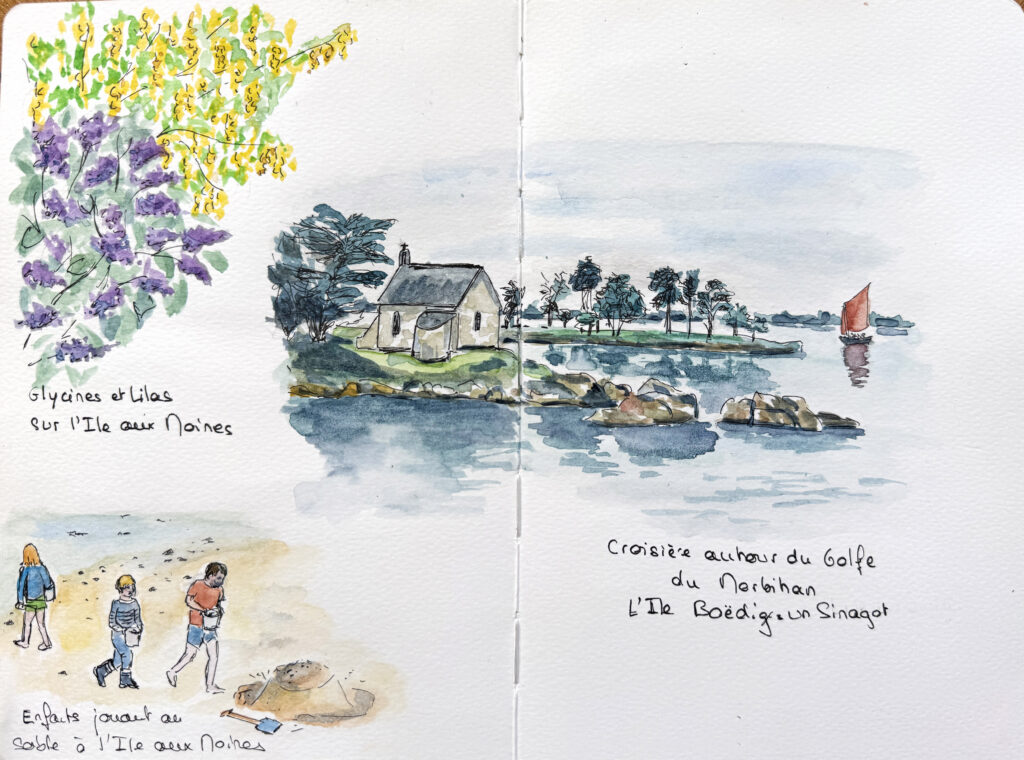 Glycines et Lilas
sur l'Ile aux Moines
Croisière autour du Golfe
du Morbihan
L'Ile Boëdig. un Sinagot
Enfants jouant au
sable à l'Ile aux Moines